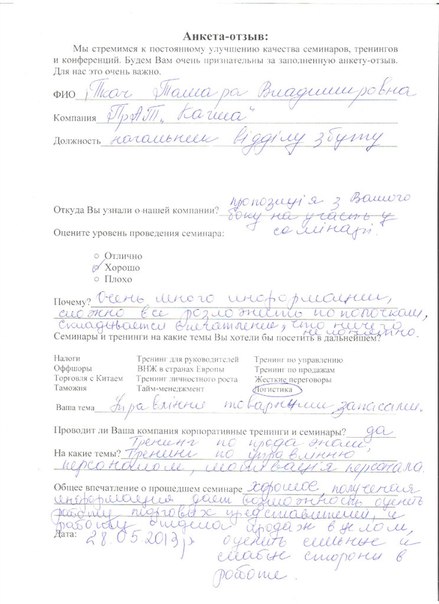 Анкета-отзыв:
Мы стремимся к постоянному улучшению качества семинаров, тренингов
и конференций. Будем Вам очень признательны за заполненную анкету-отзыв.
Для нас это очень важно.
ФИО Ткач Тамара Владимировна
Компания ПрАТ "Качша"
Должность начальник відділу збуту
пропозиція з Вашого
Откуда Вы узнали о нашей компании? боку на участь у
семінарі.
Оцените уровень проведения семинара:
Отлично
Хорошо
Плохо
Почему? Очень много информации,
сложно все разложить по полочкам,
складывается впечатление, что ничего
не понятно.
Семинары и тренинги на какие темы Вы хотели бы посетить в дальнейшем?
Налоги Тренинг для руководителей Тренинг по управлению
Оффшоры ВНЖ в странах Европы Тренинг по продажам
Торговля с Китаем Тренинг личностного роста Жесткие переговоры
Таможня Тайм-менеджмент Логистика
Ваша тема Управління товарними запасами.
Проводит ли Ваша компания корпоративные тренинги и семинары? да
Тренинг по продажам
На какие темы? Тренинги по управлінню
персоналом, мотивация персонала.
Общее впечатление о прошедшем семинаре хорошее, полученая
информация дает возможность оценить
работу торговых представителей, и
работу отдела продаж в целом,
Дата: 28 05 2013 г оценить сильные и
слабые стороны в
работе.